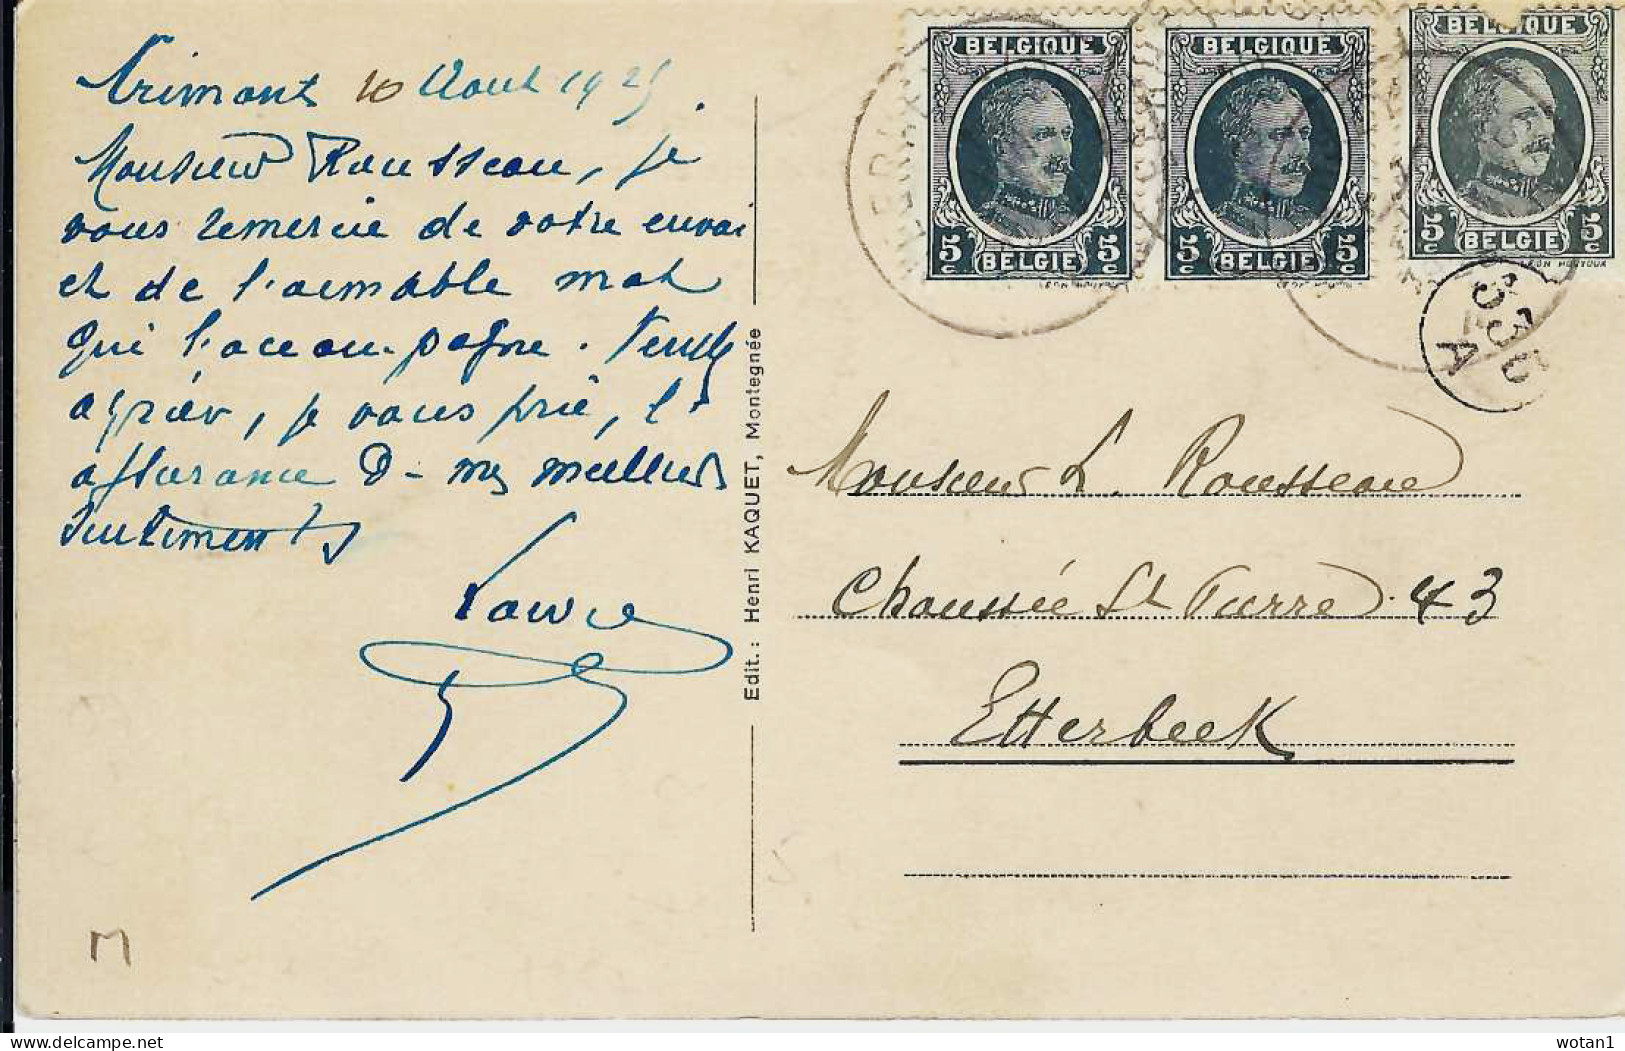 Trimont 10 Aout 1925.
Monsieur Rousseau, je
vous remercie de votre envoi
et de l'aimable mot
qui l'accompagne. Veuillez
agréer, je vous prie, l'
assurance de mes meilleurs
sentiments
Edit.: Henri KAQUET, Montegnée
BELGIQUE
5c 5c
BELGIE
BELGIQUE
5c 5c
BELGIE
BELGIQUE
5c 5c
BELGIE
LÉON HOUYOUX
A
Monsieur L. Rousseau
Chaussée St Pierre. 43
Etterbeek
M
wotan1